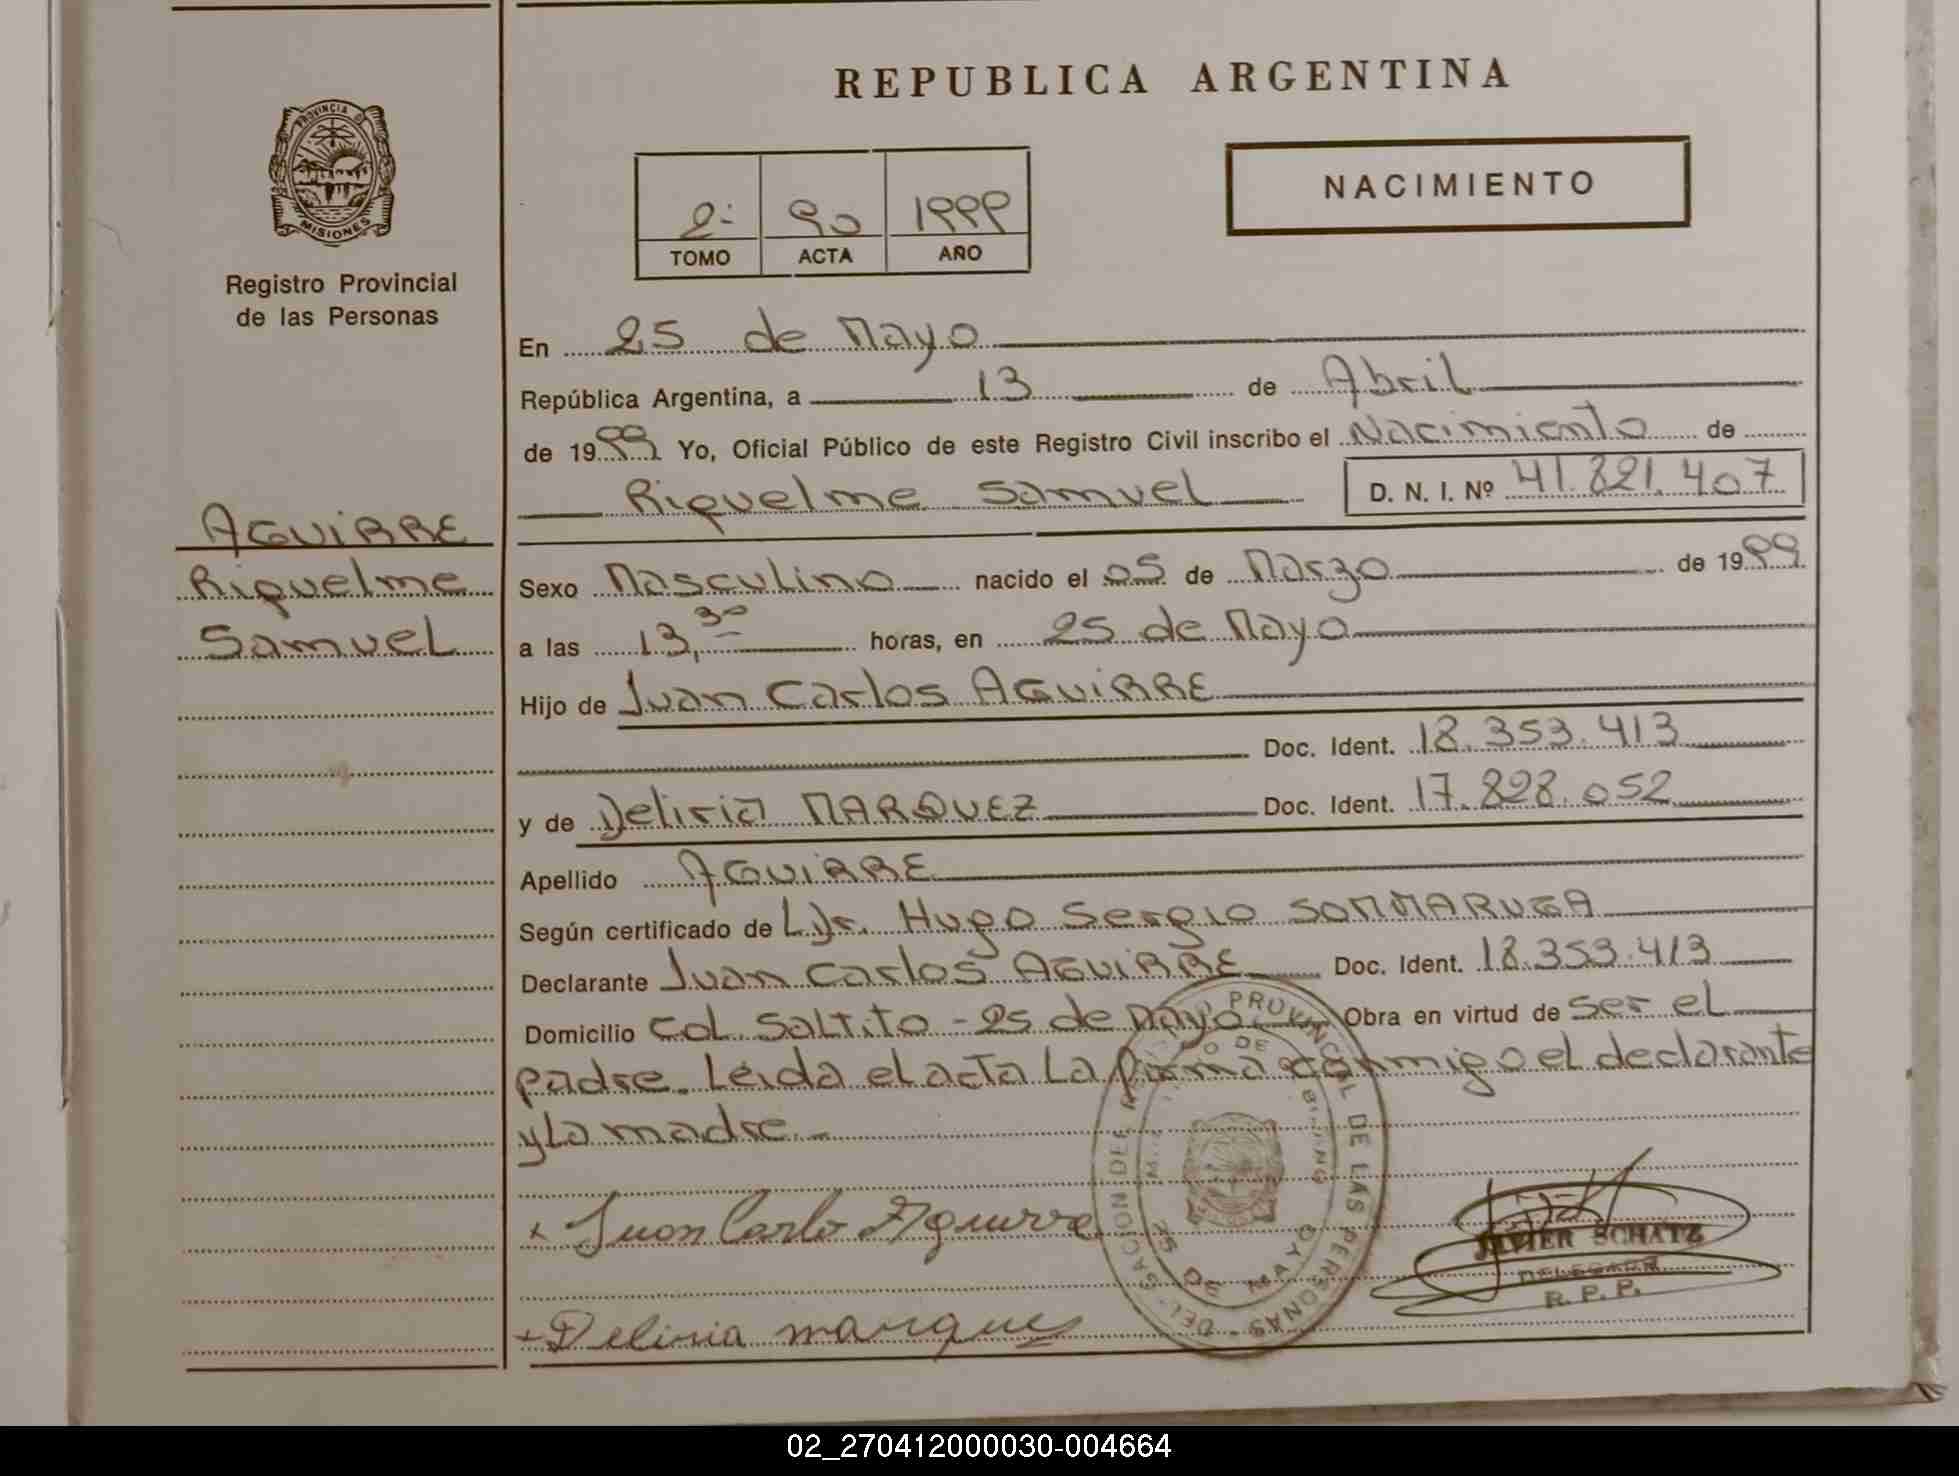 REPUBLICA ARGENTINA
PROVINCIA D
MISIONES
Registro Provincial
de las Personas
NACIMIENTO
2- 90 1999
TOMO ACTA AÑO
En 25 de Mayo
República Argentina, a 13 de Abril
de 1999 Yo, Oficial Público de este Registro Civil inscribo el Nacimiento de
Riquelme Samuel D. N. I. Nº 41.821.407
AGUIRRE
Riquelme
Samuel
Sexo Masculino nacido el 05 de Marzo de 1999
a las 13,30 horas, en 25 de Mayo
Hijo de Juan Carlos AGUIRRE
Doc. Ident. 18.353.413
y de Deliria MARQUEZ Doc. Ident. 17.828.052
Apellido AGUIRRE
Según certificado de Dr. Hugo Sergio SOMMARUGA
Declarante Juan Carlos AGUIRRE Doc. Ident. 18.353.413
Domicilio Col. Saltito - 25 de Mayo Obra en virtud de ser el
padre. Leida el acta La firma conmigo el declarante
y La madre.-
+ Juan Carlo Aguirre
+ Deliria marques
PROVINCIAL DE LAS PERSONAS
25 DE MAYO
JAVIER SCHATZ
R. P. P.
02_270412000030-004664